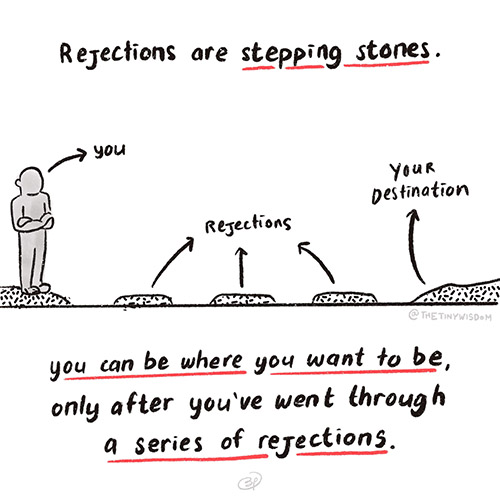 Rejections are stepping stones.
you
Your
Destination
Rejections
@THETINYWISDOM
you can be where you want to be,
only after you've went through
a series of rejections.